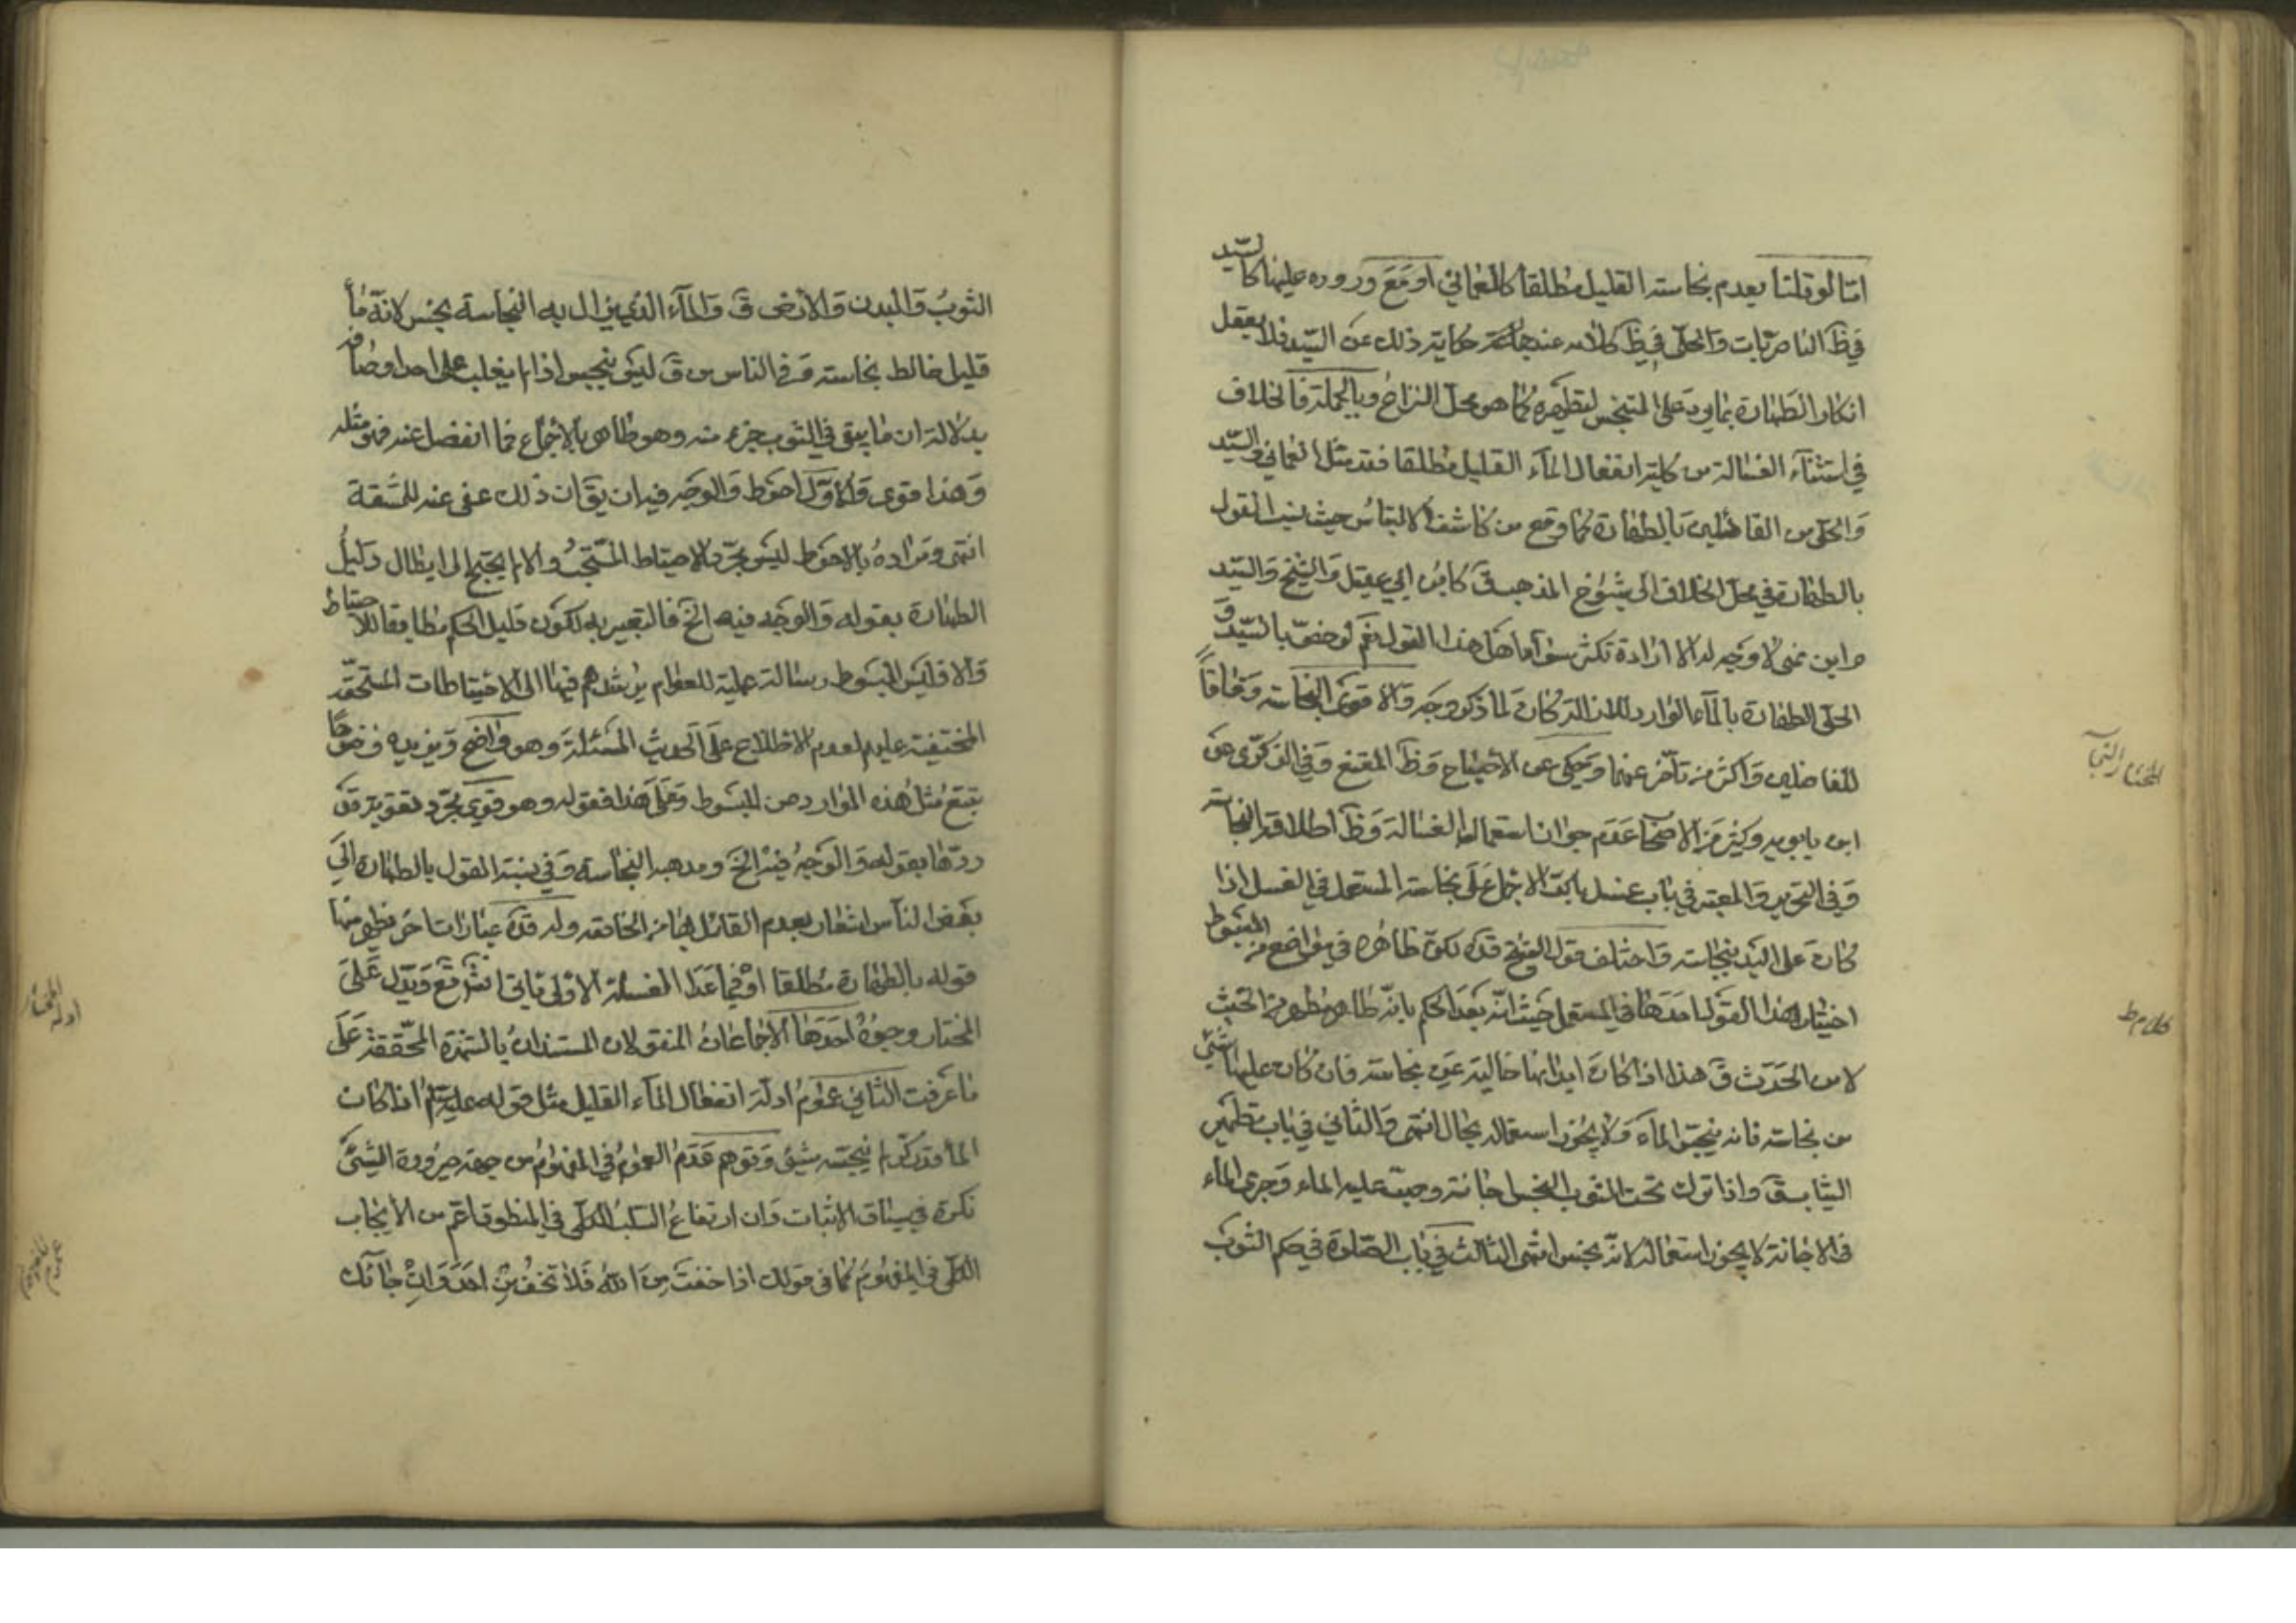 امّا لو قلنا بعدم نجاسته القليل مطلقا كالعماني او مع وروده عليها كالسيّد
في ظ الناصريّات والحلّي في ظ كلامه عند حكاية ذلك عن السيّد فلا يعقل
انكار الطهارة بما يرد على المتنجس لتطهيره كما هو محل النزاع وبالجملة فالخلاف
في استثناء الغسالة من كلية انفعال الماء القليل مطلقا فعد مثل العماني والسيّد
والحلي من القائلين بالطهارة كما وقع من كاشف الالتباس حيث نسب القول
بالطهارة في محل الخلاف الى شيوخ المذهب ق كابن ابي عقيل والشيخ والسيّد
وابن حمزة لا وجه له الا ارادة تكثر سواد اهل هذا القول نعم لو خصّ بالسيّد و
الحلي الطهارة بالماء الوارد للازالة كان لما ذكر وجه والاقوى النجاسة وفاقاً
للفاضلين واكثر من تأخّر عنهما وحكي عن الاصباح وظ المقنع وفي الذكرى عن
ابن بابويه وكثير من الاصحاب عدم جواز استعمال الغسالة وظ اطلاقه النجاسة
وفي التحرير والمعتبر في باب غسل الاجماع على نجاسة المستعمل في الغسل اذا
كان على البدن نجاسة واختلف قول الشيخ قده لكن ظاهره في مواضع من المبسوط
اختيار هذا القول احدها في المستعمل حيث انّه بعد الحكم بانّه طاهر مطهر من الخبث
لا من الحدث ق هذا اذا كان ابدانها خالية عن نجاسة فان كان عليها شيء
من نجاسة فانه ينجس الماء ولا يجوز استعماله بحال انتهى والثاني في باب تطهير
الثياب ق واذا ترك تحت الثوب النجس اجانة وصبّ عليه الماء وجرى الماء
في الاجانة لا يجوز استعماله لانّه نجس انتهى الثالث في باب الصلوة في حكم الثوب
المختار النجا
كلام ط
الثوب والبدن والارض ق والماء الذي يزال به النجاسة نجس لانّه ماء
قليل خالط نجاسة وفي الناس من ق ليس بنجس اذا لم يغلب على احد اوصافه
بدلالة ان ما يبقى في الثوب جزء منه وهو طاهر بالاجماع فما انفصل عنه فهو مثله
وهذا قوي والاول احوط والوجه فيه ان يق ان ذلك عفي عنه للمشقة
انتهى ومراده بالاحوط ليس مجرّد الاحتياط المستحب والا لم يحتج الى ابطال دليل
الطهارة بقوله والوجه فيه الخ فالتعبير به لكون دليل الحكم مطابقا للاحتياط
والا فليس المبسوط رسالة عملية للعوام يرشدهم فيها الى الاحتياطات المستحبّة
المختفية عليهم لعدم الاطلاع على احاديث المسئلة وهو واضح ويزيده وضوحا
تتبع مثل هذه الموارد من المبسوط وعلى هذا فقوله وهو قوي مجرّد تقوية قد
ردّها بقوله والوجه فيه الخ ومذهبه النجاسة وفي نسبة القول بالطهارة الى
بعض الناس اشعار بعدم القائل بها من الخاصة وله قده عبارات اخر يظهر منها
قوله بالطهارة مطلقا او فيما عدا الغسلة الاولى ياتي انش تع ويدل على
المختار وجوه احدها الاجماعات المنقولان المستندان بالشهرة المحققة على
ما عرفت الثاني عموم ادلة انفعال الماء القليل مثل قوله عليه السلم اذا كان
الماء قدر كر لم ينجسه شيء وتوهم عدم العموم في المفهوم من جهة صيرورة الشيء
نكرة في سياق الاثبات وان ارتفاع السلب الكلي في المنطوق اعم من الايجاب
الكلي في المفهوم كما في قولك اذا خفت من الله فلا تخف من احد وان جائك
ادله المختار
عموم المفهوم